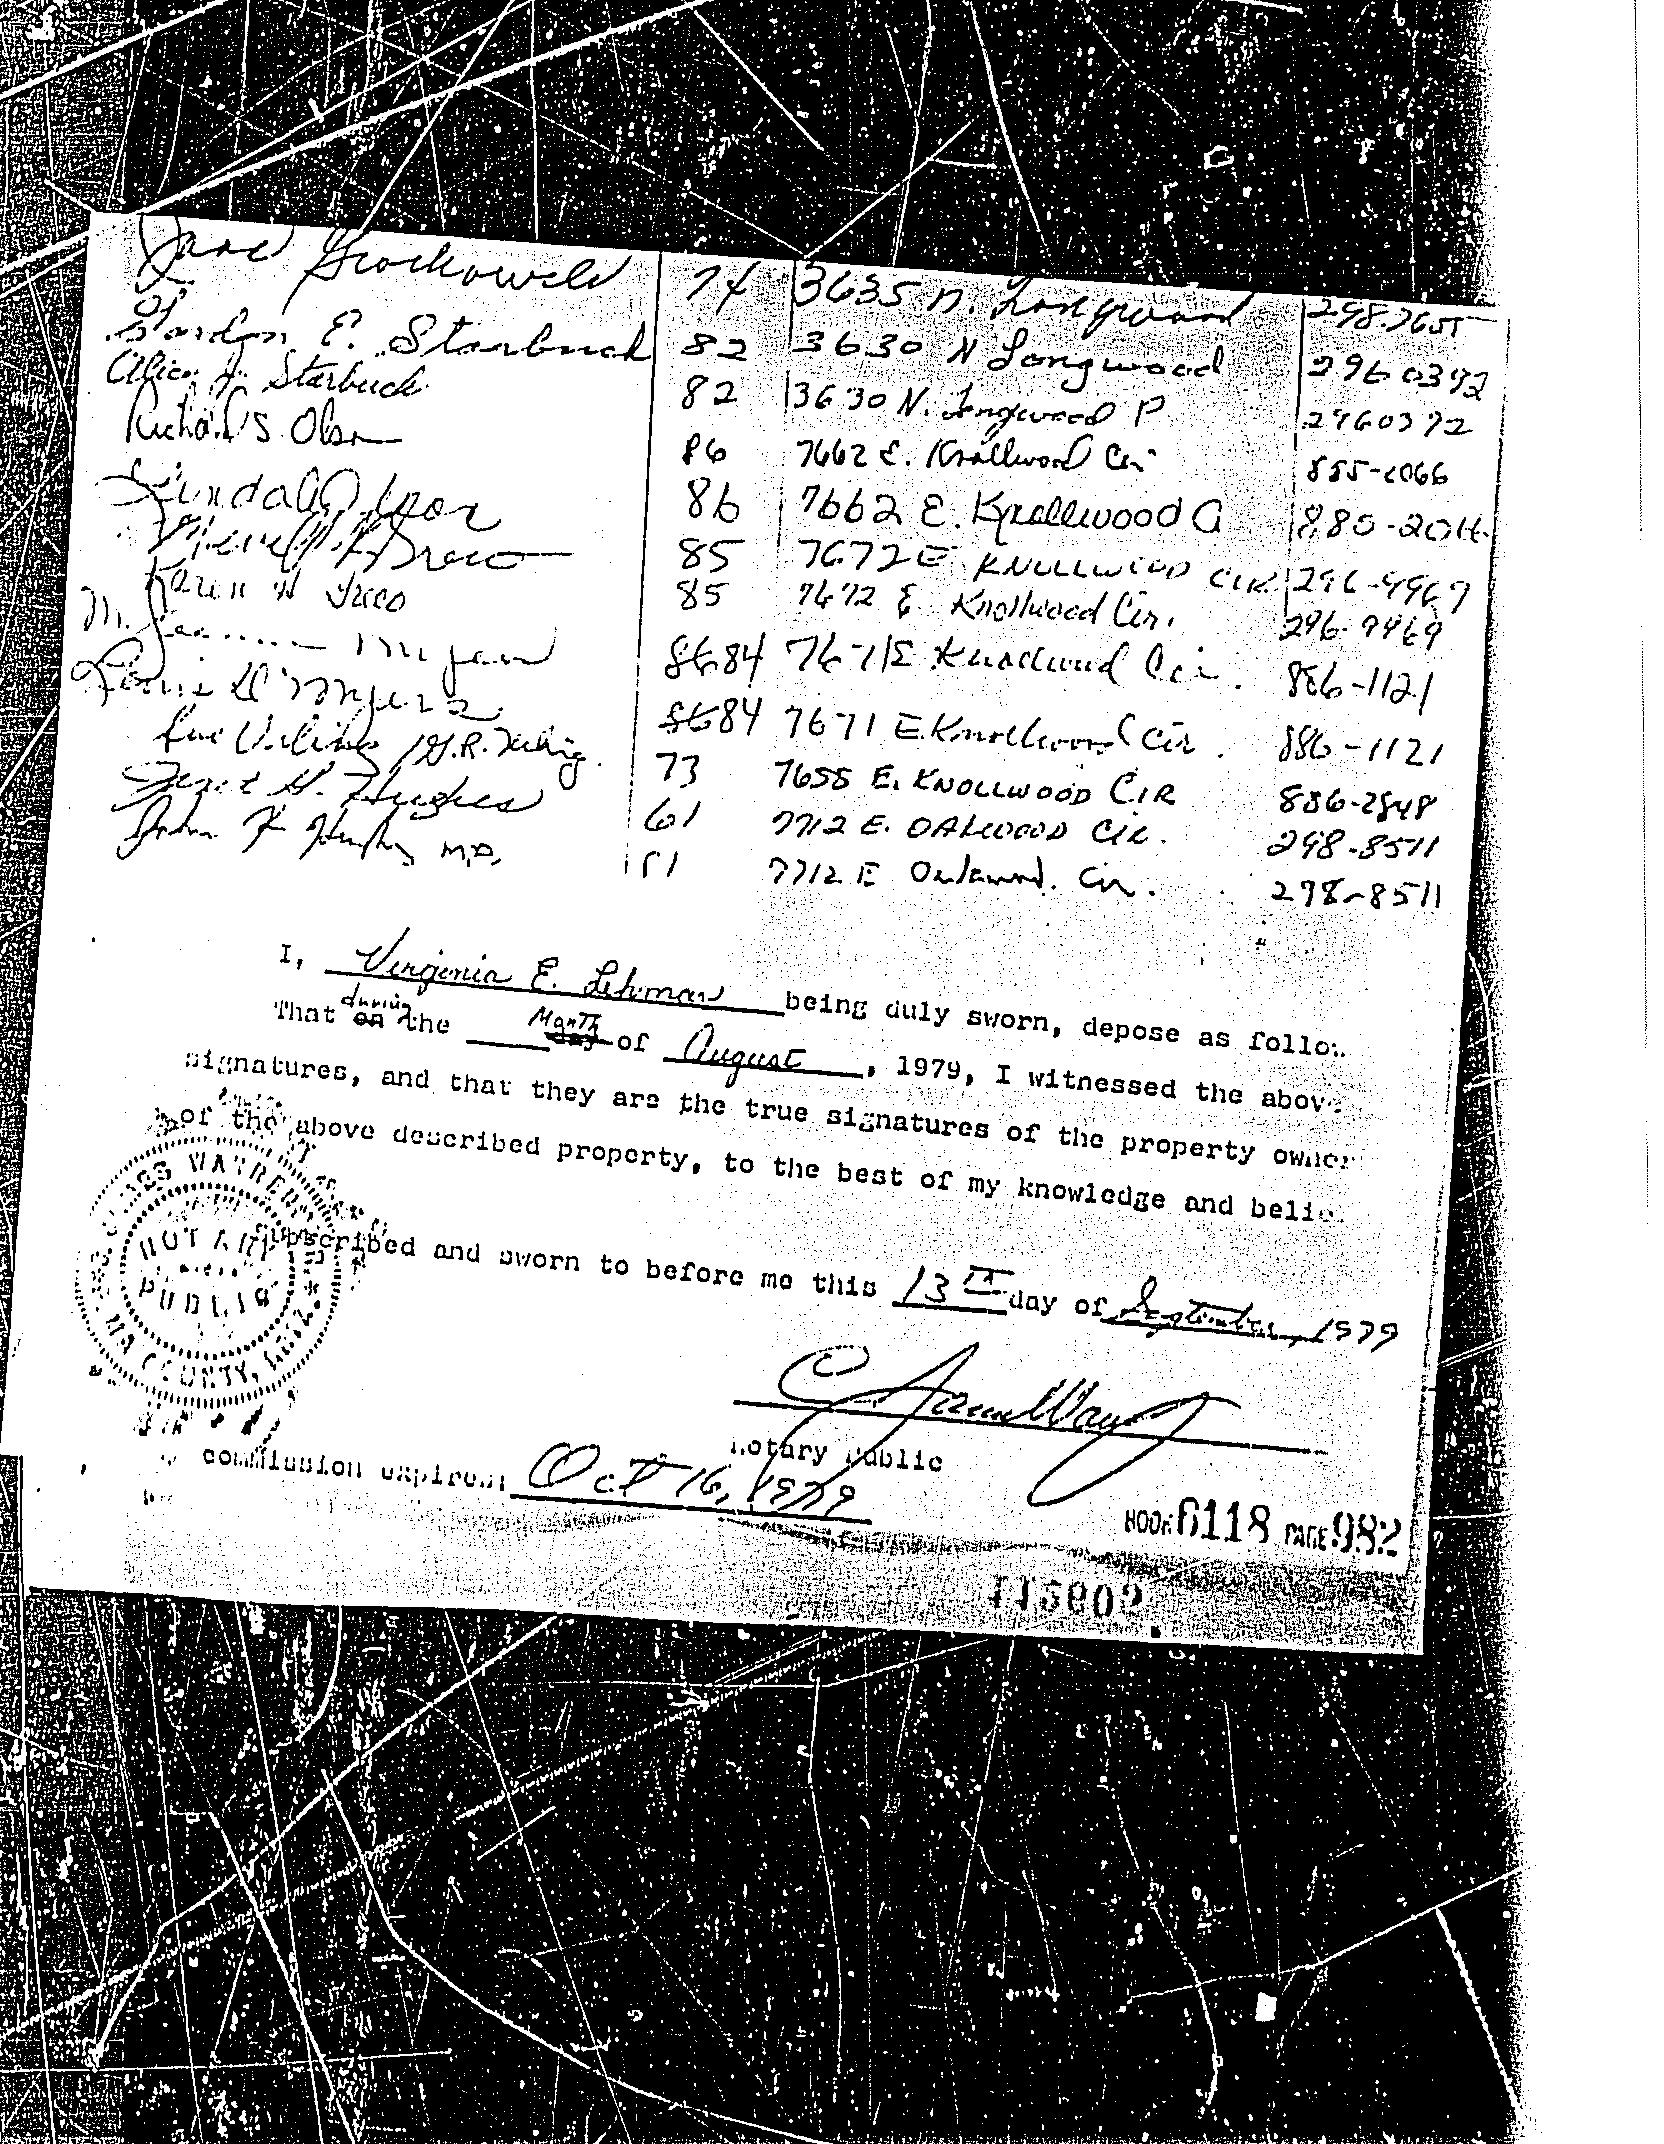 Jane 74 3635 N. Longwood 298-7655
Gordon E. Starbuck 82 3630 N Longwood 2960372
Alice J. Starbuck 82 3630 N. Longwood P 2960372
Richard S. Olson 86 7662 E. Knollwood Cir 885-2066
Linda Olson 86 7662 E. Knollwood C
85 7672 E KNOLLWOOD CIR. 296-9969
Karen H Greco 85 7672 E Knollwood Cir. 296-9969
M. Jeanne Myers 8684 7671 E Knollwood Cir. 886-1121
Louis D Myers 8684 7671 E. Knollwood Cir. 886-1121
Sue /G.R. 73 7658 E. KNOLLWOOD CIR 886-2848
Janet H. Hughes 61 7712 E. OAKWOOD CIR. 298-8511
John F Hughes M.D. 61 7712 E Oakwood. Cir. 298-8511
I, Virginia E. Lehman being duly sworn, depose as follow
during Month
That on the day of August, 1979, I witnessed the above
signatures, and that they are the true signatures of the property owner
of the above described property, to the best of my knowledge and belie
Subscribed and sworn to before me this 13th day of September, 1979
NOTARY
PUBLIC
Notary Public
commission expires: Oct 16, 1979
BOOK 6118 PAGE 982
115602